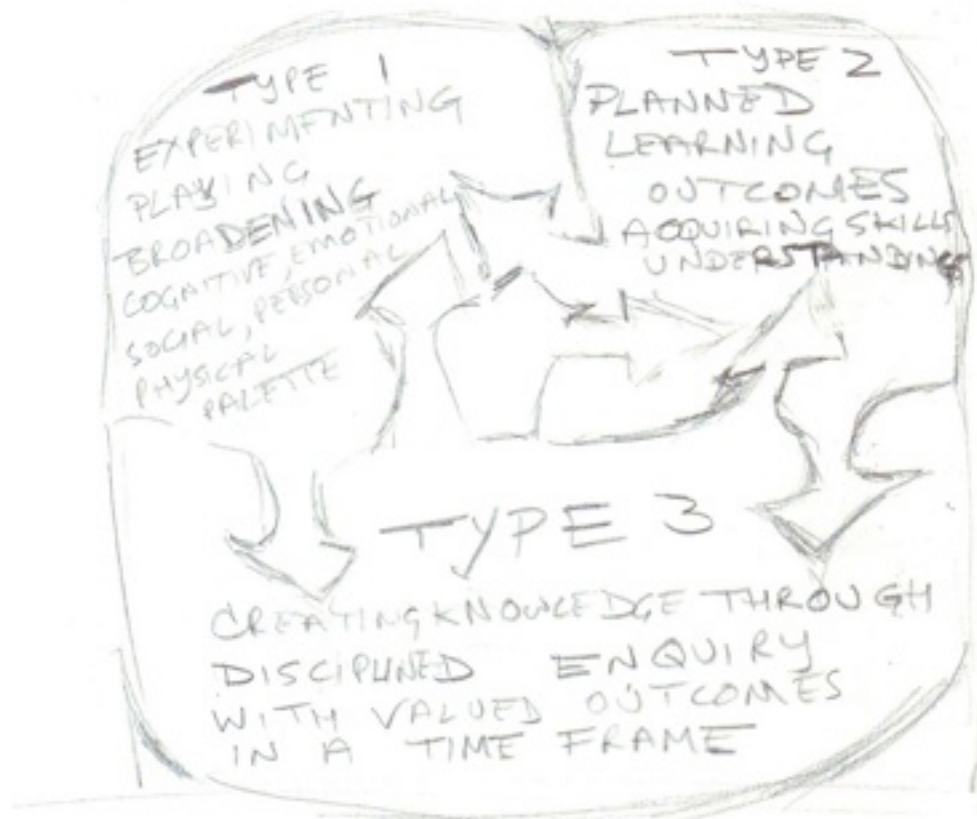 TYPE 1
EXPERIMENTING
PLAYING
BROADENING
COGNITIVE, EMOTIONAL
SOCIAL, PERSONAL
PHYSICAL
PALETTE
TYPE 2
PLANNED
LEARNING
OUTCOMES
ACQUIRING SKILLS
UNDERSTANDINGS
TYPE 3
CREATING KNOWLEDGE THROUGH
DISCIPLINED ENQUIRY
WITH VALUED OUTCOMES
IN A TIME FRAME